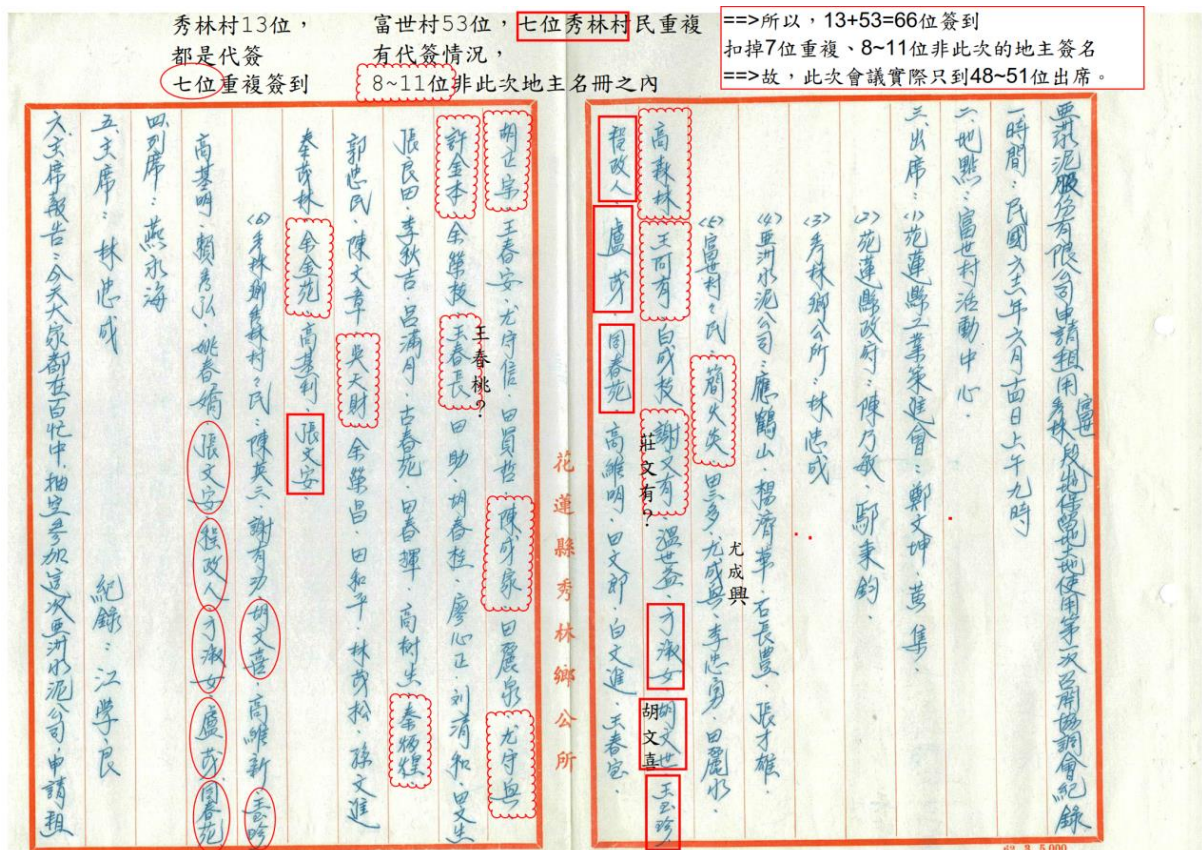 秀林村13位，
都是代簽
七位重複簽到
富世村53位，七位秀林村民重複
有代簽情況，
8~11位非此次地主名冊之內
==>所以，13+53=66位簽到
扣掉7位重複、8~11位非此次的地主簽名
==>故，此次會議實際只到48~51位出席。
亞泥股份有限公司申請租用富世秀林段山地保留地土地使用第一次召開協調會紀錄
一時間：民國六十二年六月十四日上午九時
二、地點：富世村活動中心．
三、出席：⑴花蓮縣工業策進會：鄭文坤．黃集．
⑵花蓮縣政府：陳乃敏．鄢秉鈞．
⑶秀林鄉公所：林忠成
⑷亞洲水泥公司：應鶴山．楊濟華．石長豐．張才雄．
⑸富世村村民：簡火炎．田三多．尤成興．李忠勇．田麗水．
尤成興
高森林．王阿有．白成枝．謝文有．溫世益．方淑女．胡文世．王玉珍
莊文有？
胡文喜
程政人．盧茂．周春花．高維明．田文郎．白文進．王春宝．
花蓮縣秀林鄉公所
胡正宗．王春安．尤守信．田買哲．陳成家．田麗泉．尤守興
許金木．余榮枝．王春長．田助．胡春桂．廖心正．刘清和．田文生
王春桃？
張良田．李秋吉．呂滿月．古春花．田春輝．高樹生．秦炳煌
郭忠民．陳文章．吳天財．余榮昌．田和平．林茂松．孫文進
秦茂林．余金花．高基利．張文安．
⑹秀林鄉秀林村村民：陳英三．謝有功．胡文喜．高維新．王玉珍
高基明．賴秀弘．姚春嬌．張文安．程政人．方淑女．盧茂．周春花
四列席：燕永海
五、主席：林忠成　紀錄：江學良
六、主席報告：今天大家都在百忙中．抽空參加這次亞洲水泥公司．申請租